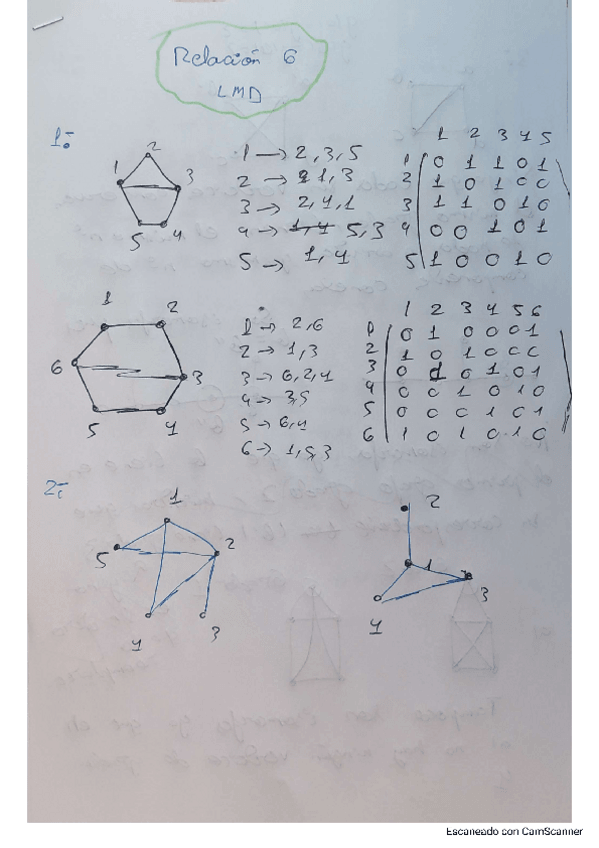 Relación 6
LMD
1º
1 2 3 4 5
1 → 2, 3, 5
2 → 1, 3
3 → 2, 4, 1
4 → 5, 3
5 → 1, 4
1 2 3 4 5
1 0 1 1 0 1
2 1 0 1 0 0
3 1 1 0 1 0
4 0 0 1 0 1
5 1 0 0 1 0
1 2 3 4 5 6
1 → 2, 6
2 → 1, 3
3 → 6, 2, 4
4 → 3, 5
5 → 6, 4
6 → 1, 5, 3
1 2 3 4 5 6
1 0 1 0 0 0 1
2 1 0 1 0 0 0
3 0 1 0 1 0 1
4 0 0 1 0 1 0
5 0 0 0 1 0 1
6 1 0 1 0 1 0
2º
1 2 3 4 5
1 2 3 4
Escaneado con CamScanner